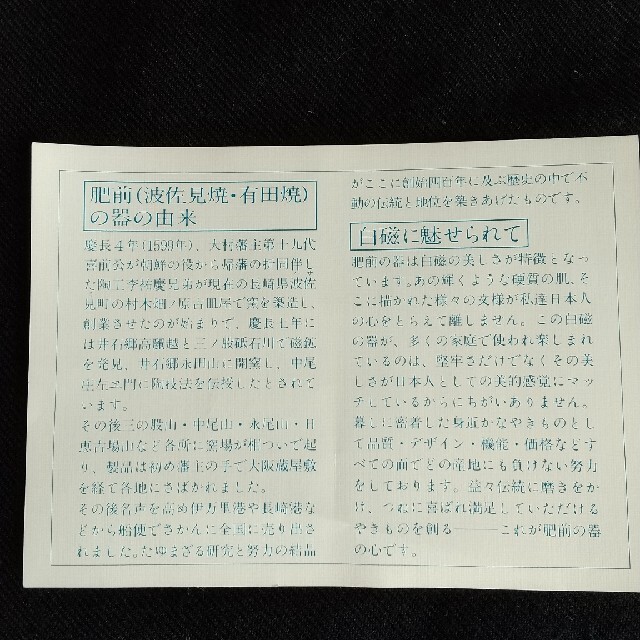 肥前(波佐見焼・有田焼)
の器の由来
慶長4年(1599年)、大村藩主第十九代
喜前公が朝鮮の役から帰藩の折同伴し
た陶工李祐慶兄弟が現在の長崎県波佐
見町の村木畑ノ原古皿屋で窯を築造し、
創業させたのが始まりで、慶長十年に
は井石郷高麗越と三ノ股砥石川で磁鉱
を発見、井石郷永田山に開窯し、中尾
庄左ヱ門に陶技法を伝授したとされて
います。
その後三の股山・中尾山・永尾山・
恵古場山など各所に窯場が相ついで起
り、製品は初め藩主の手で大阪蔵屋敷
を経て各地にさばかれました。
その後名声を高め伊万里港や長崎港な
どから船便でさかんに全国に売り出さ
れました。たゆまざる研究と努力の結晶
がここに創始四百年に及ぶ歴史の中で不
動の伝統と地位を築きあげたものです。
白磁に魅せられて
肥前の器は白磁の美しさが特徴となっ
ています。あの輝くような硬質の肌、そ
こに描かれた様々の文様が私達日本人
の心をとらえて離しません。この白磁
の器が、多くの家庭で使われ楽しまれ
ているのは、堅牢さだけでなくその美
しさが日本人としての美的感覚にマッ
チしているからにちがいありません。
暮しに密着した身近かなやきものとし
て品質・デザイン・機能・価格などす
べての面でどの産地にも負けない努力
をしております。益々伝統に磨きをか
け、つねに喜ばれ満足していただける
やきものを創る———これが肥前の器
の心です。